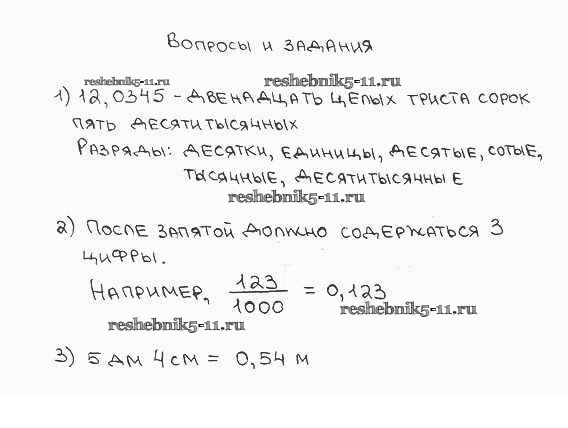 Вопросы и задания
reshebnik5-11.ru reshebnik5-11.ru
1) 12,0345 - двенадцать целых триста сорок
пять десятитысячных
Разряды: десятки, единицы, десятые, сотые,
тысячные, десятитысячные
reshebnik5-11.ru
2) После запятой должно содержаться 3
цифры.
Например, 123/1000 = 0,123
reshebnik5-11.ru reshebnik5-11.ru
3) 5 дм 4 см = 0,54 м